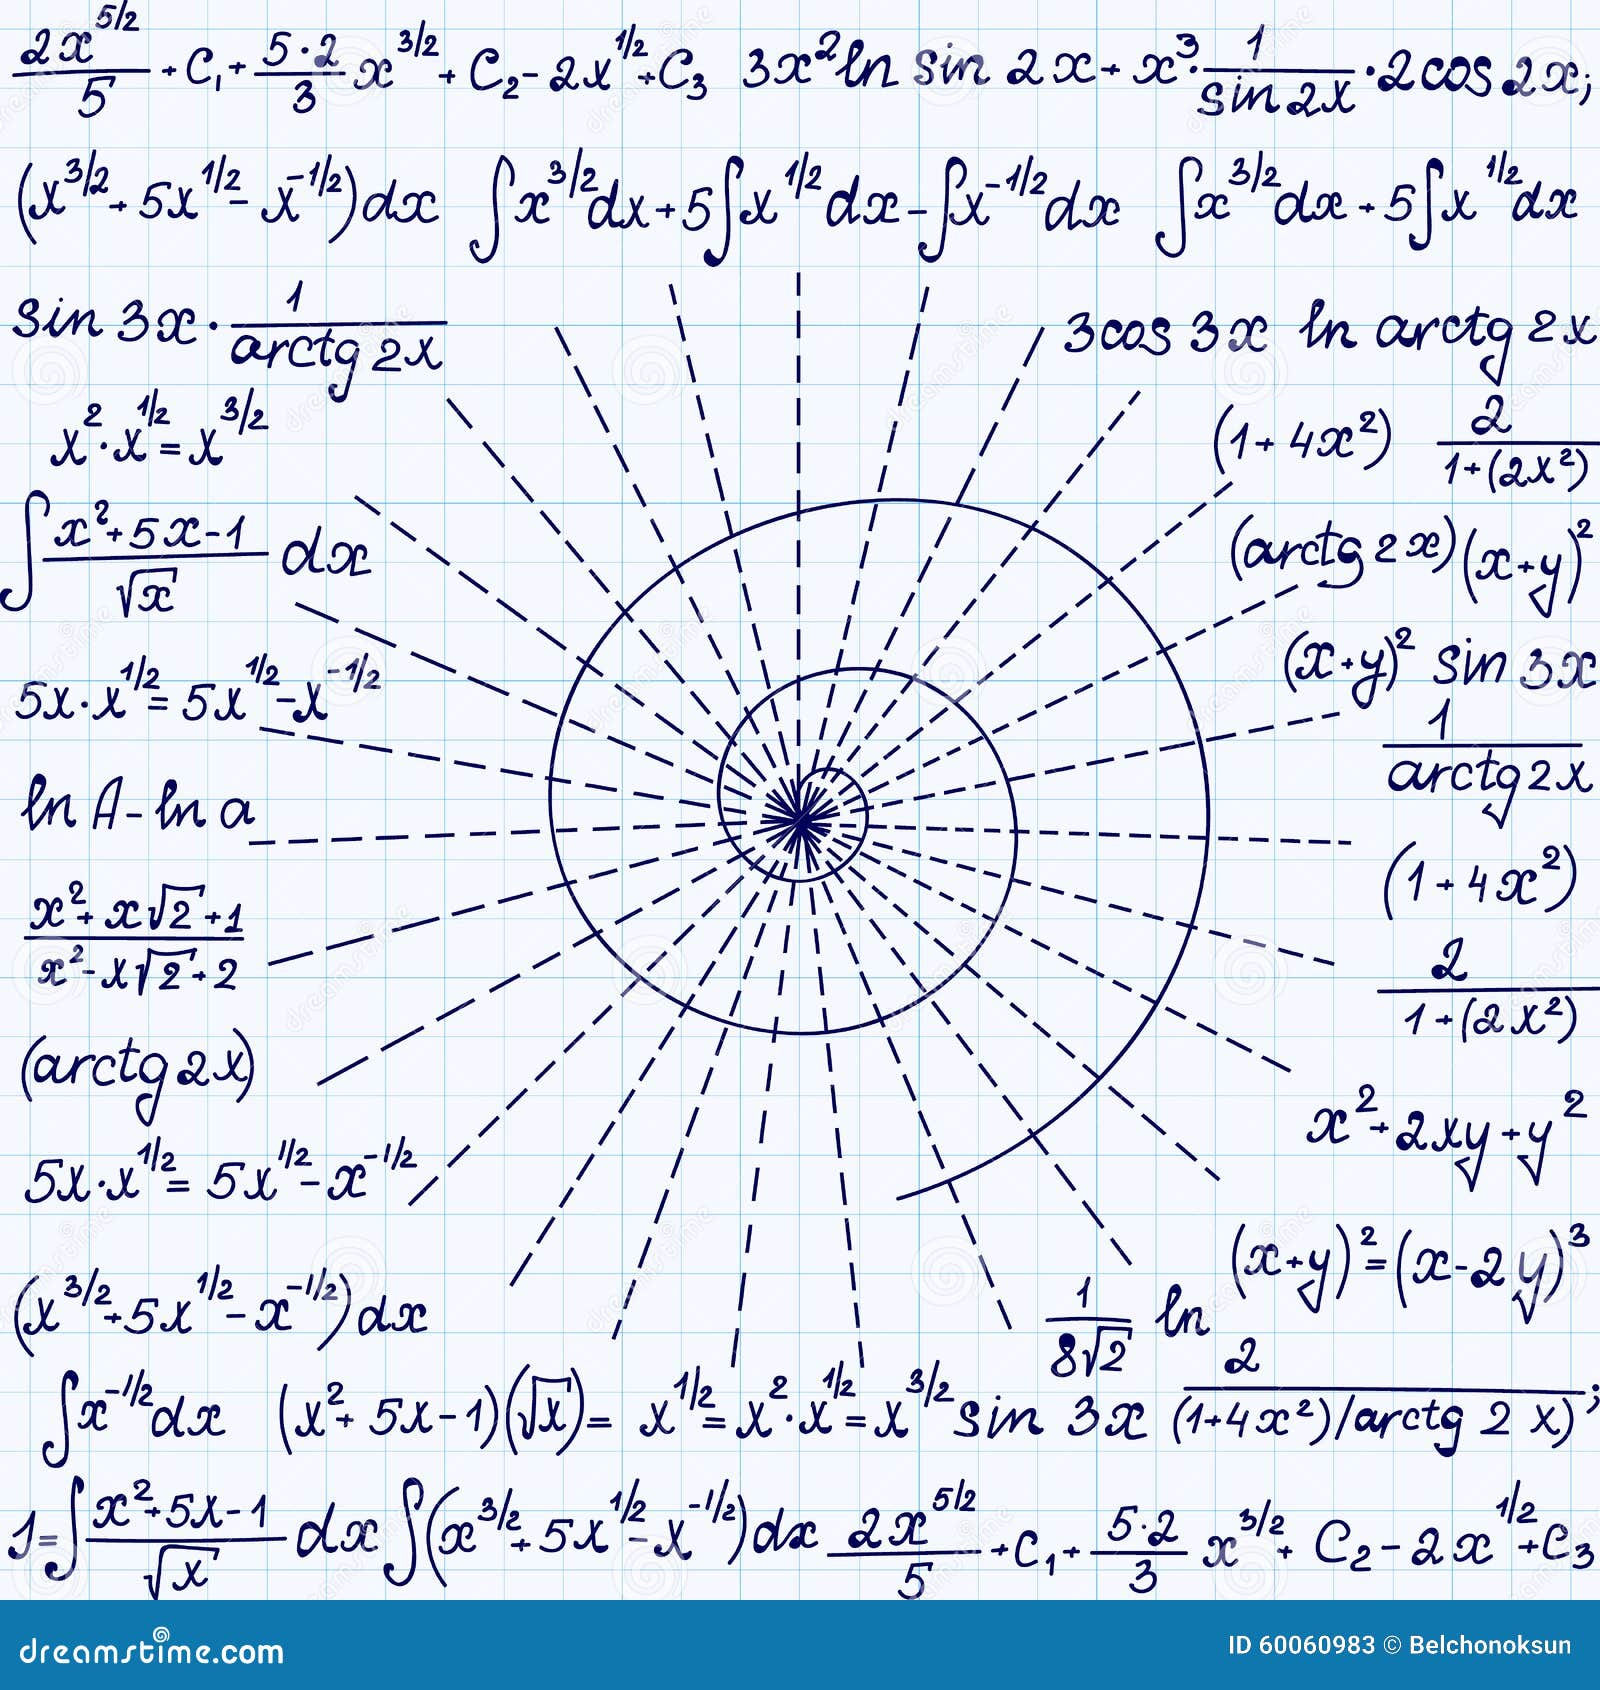 2x^5/2 / 5 + C₁ + 5·2 / 3 x^3/2 + C₂ - 2x^1/2 + C₃ 3x² ln sin 2x + x³ · 1 / sin 2x · 2cos 2x;
(x^3/2 + 5x^1/2 - x^-1/2)dx ∫x^3/2 dx + 5∫x^1/2 dx - ∫x^-1/2 dx ∫x^3/2 dx + 5∫x^1/2 dx
sin 3x · 1 / arctg 2x
3cos 3x ln arctg 2x
x² · x^1/2 = x^3/2
(1 + 4x²) 2 / 1+(2x²)
∫ x² + 5x - 1 / √x dx
(arctg 2x)(x+y)²
5x · x^1/2 = 5x^1/2 - x^-1/2
(x+y)² sin 3x
1 / arctg 2x
ln A - ln a
(1 + 4x²)
x² + x√2 + 1 / x² - x√2 + 2
2 / 1+(2x²)
(arctg 2x)
x² + 2xy + y²
5x · x^1/2 = 5x^1/2 - x^-1/2
(x+y)² = (x-2y)³
(x^3/2 + 5x^1/2 - x^-1/2)dx
1 / 8√2 ln
∫x^-1/2 dx (x² + 5x - 1)(√x) = x^1/2 = x² · x^1/2 = x^3/2 sin 3x 2 / (1+4x²)/arctg 2x);
1 = ∫ x² + 5x - 1 / √x dx ∫(x^3/2 + 5x^1/2 - x^-1/2)dx 2x^5/2 / 5 + C₁ + 5·2 / 3 x^3/2 + C₂ - 2x^1/2 + C₃
dreamstime.com
ID 60060983 © Belchonoksun